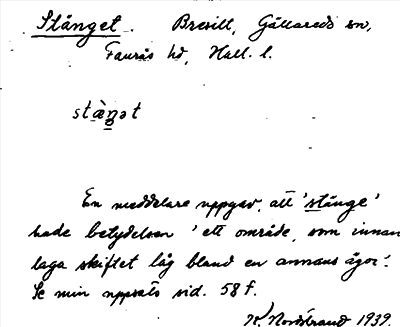 Stånget. Bresilt, Gällareds sn,
Faurås hd, Hall. l.
stàŋət
En meddelare uppgav, att 'stånge'
hade betydelsen 'ett område, som innan
laga skiftet låg bland en annans ägor'.
Se min uppsats sid. 58 f.
K. Nordstrand 1939.